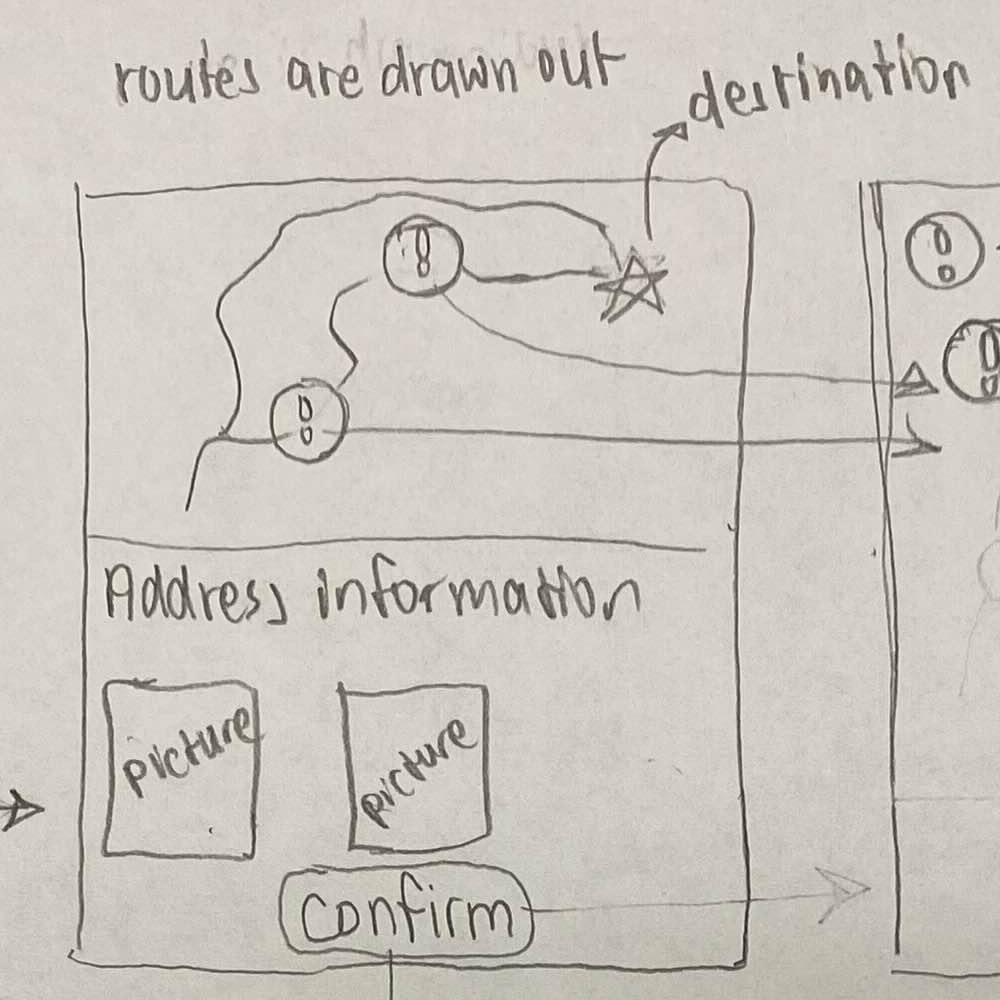 routes are drawn out
destination
Address information
picture
picture
Confirm